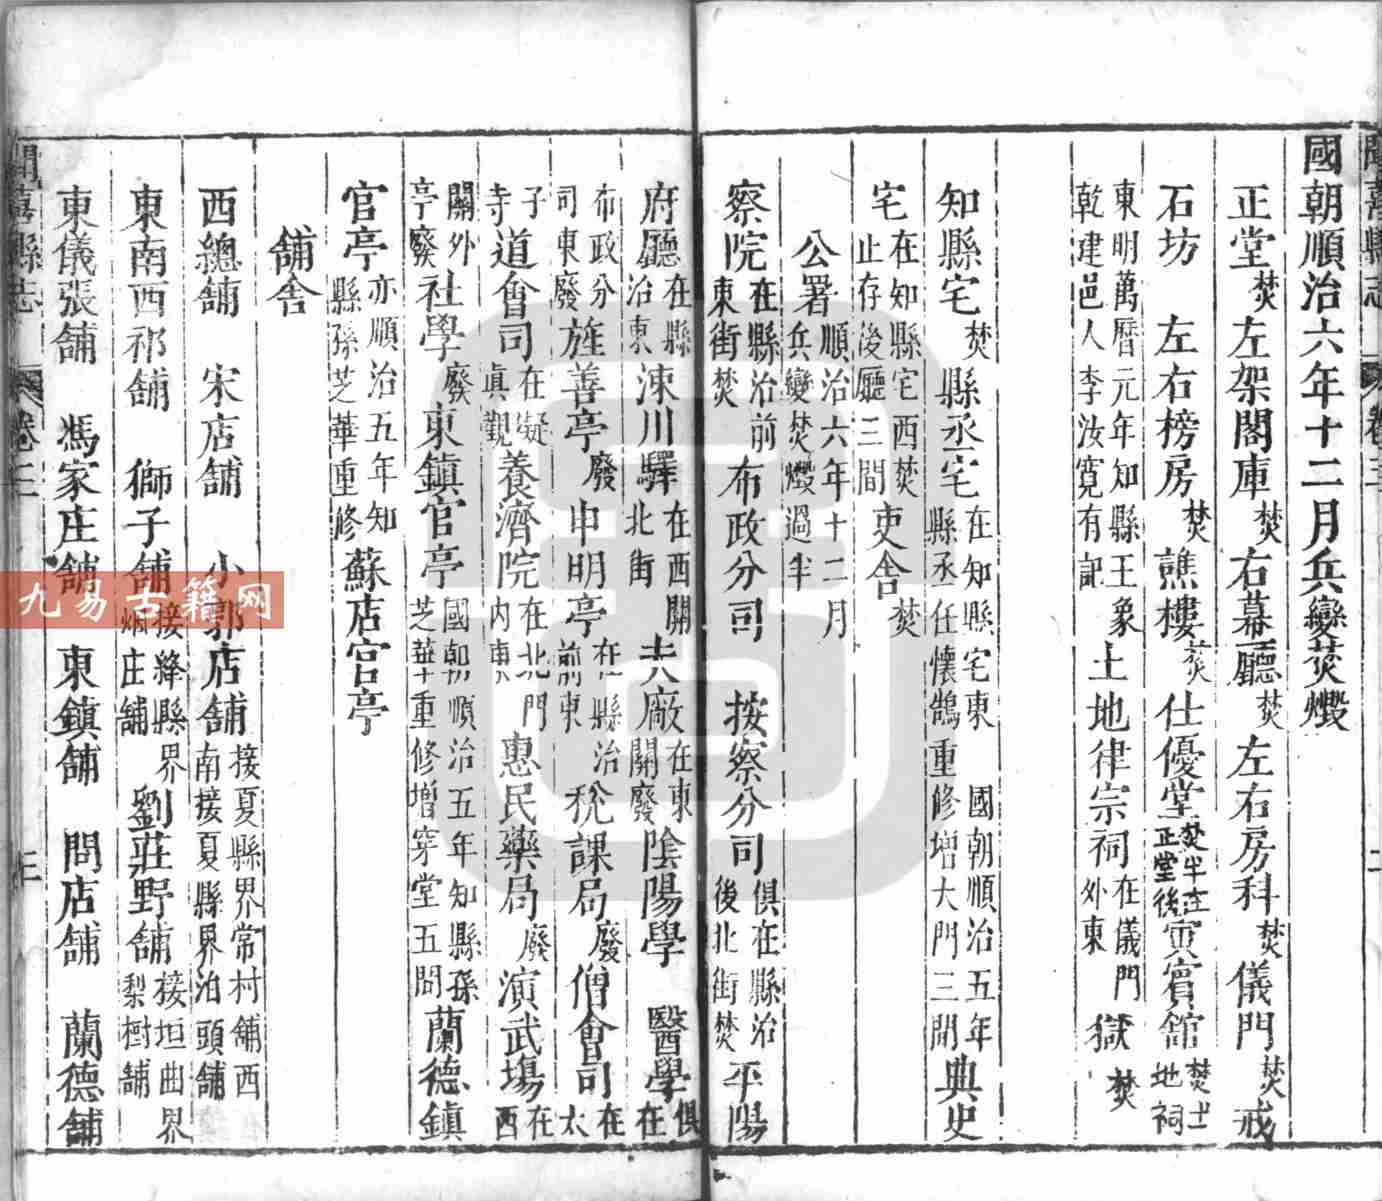 國朝順治六年十二月兵變焚燬
正堂焚左架閣庫焚右幕廳焚左右房科焚儀門焚戒
石坊 左右榜房焚譙樓焚仕優堂焚半在正堂後寅賓館焚土地祠
東明萬曆元年知縣王象乾建邑人李汝寬有記土地律宗祠在儀門外東獄焚
知縣宅焚縣丞宅在知縣宅東 國朝順治五年縣丞任懷鵠重修增大門三間典史
宅在知縣宅西焚止存後廳三間吏舍焚
公署順治六年十二月兵變焚燬過半
察院在縣治前東街焚布政分司 按察分司俱在縣治後北街焚平陽
府廳在縣治東涑川驛在西關北街夫廠在東關廢陰陽學 醫學俱在
布政分司東廢旌善亭廢申明亭在縣治前東稅課局廢僧會司在太
子寺道會司在凝眞觀養濟院在北門内東惠民藥局廢演武場在西
關外亭廢社學廢東鎮官亭國朝順治五年知縣孫芝華重修增穿堂五間蘭德鎮
官亭亦順治五年知縣孫芝華重修蘇店官亭
舖舍
西總舖 宋店舖 小郭店舖接夏縣界常村舖西南接夏縣界泊頭舖
東南西祁舖 獅子舖接絳縣界烟庄舖劉莊野舖接垣曲界梨樹舖
東儀張舖 馮家庄舖 東鎮舖 問店舖 蘭德舖
聞喜縣志
卷二
九易古籍网